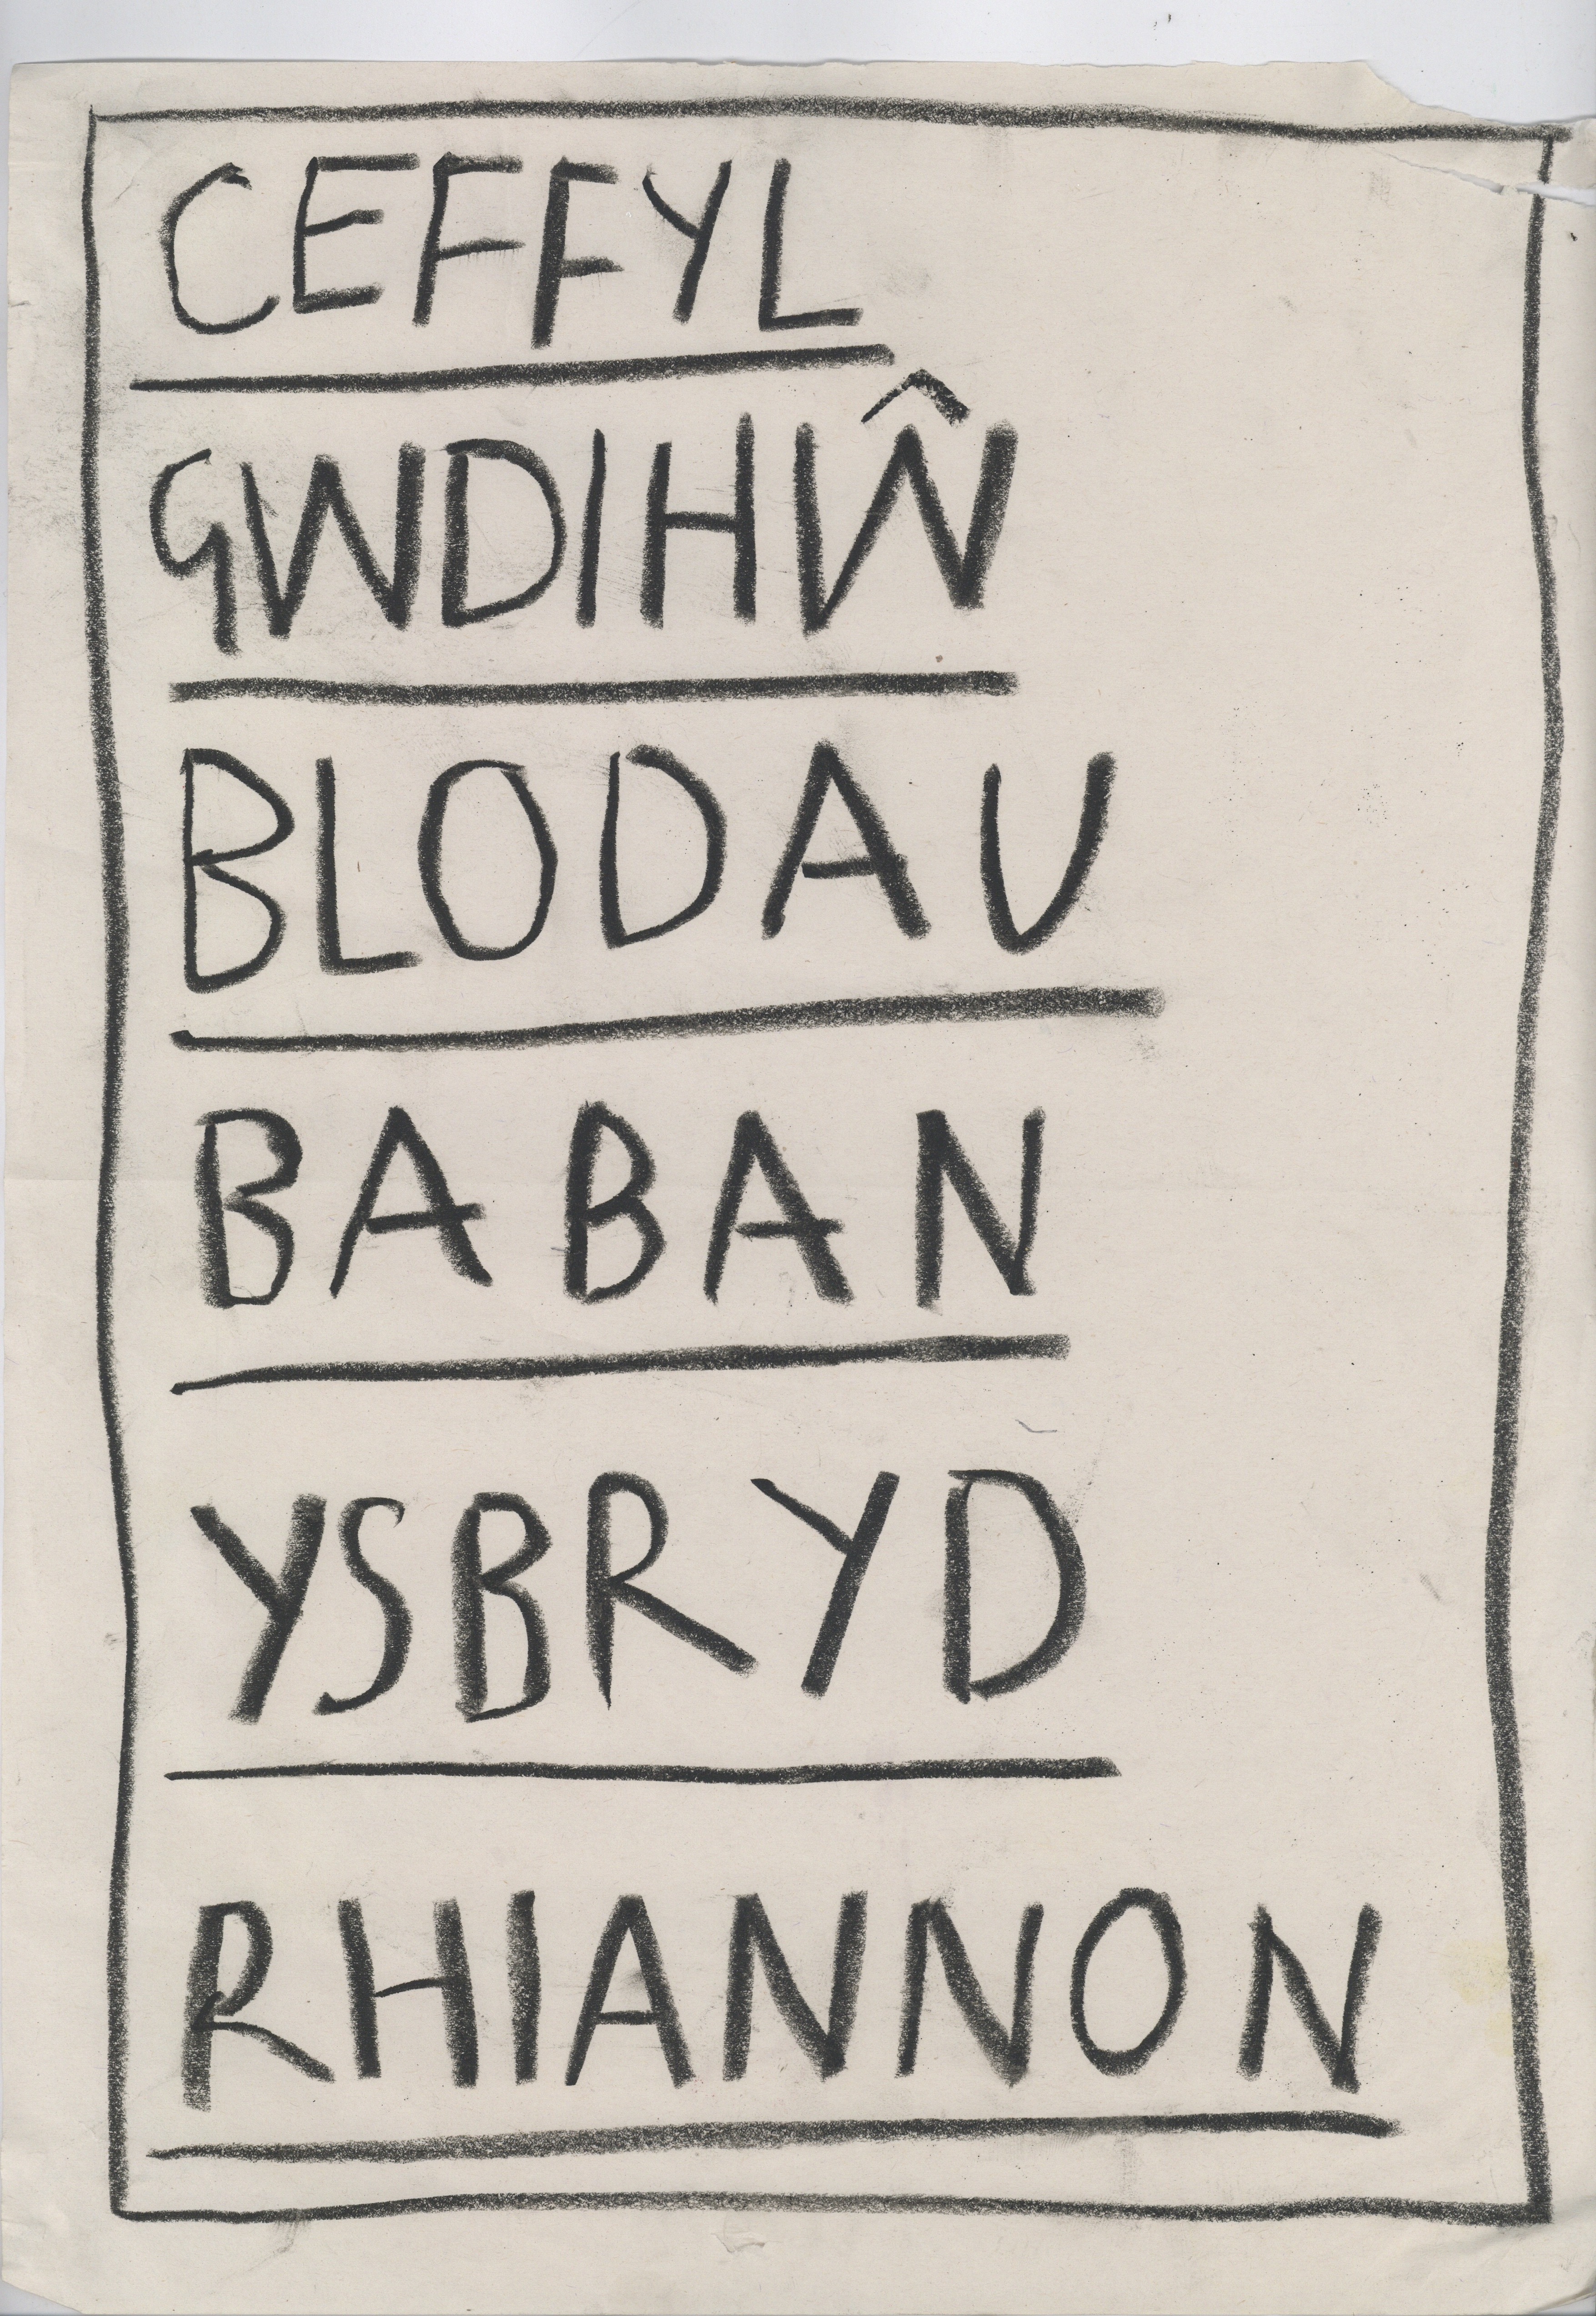 CEFFYL
GWDIHŴ
BLODAU
BABAN
YSBRYD
RHIANNON